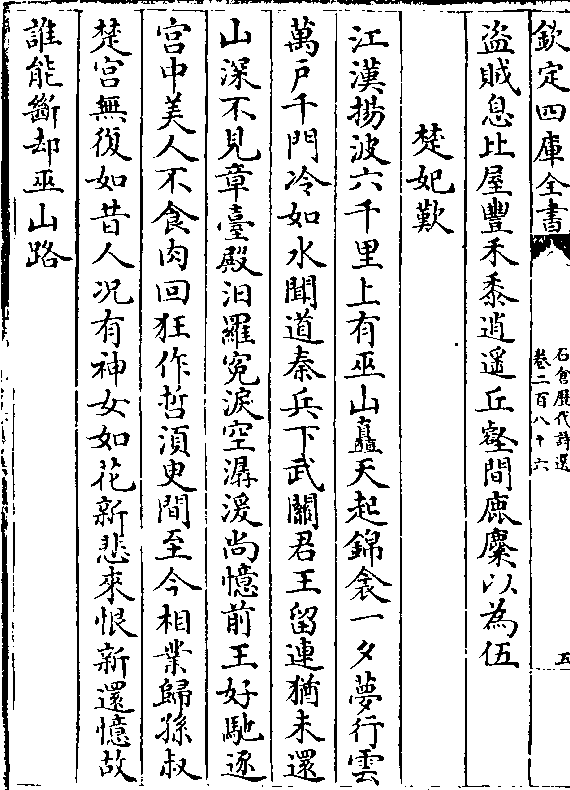 欽定四庫全書
石倉歷代詩選
卷二百八十六
五
盗賊息比屋豐禾黍逍遥丘壑間鹿麋以為伍
楚妃歎
江漢揚波六千里上有巫山矗天起錦衾一夕夢行雲
萬戸千門冷如水聞道秦兵下武關君王留連猶未還
山深不見章臺殿汨羅寃淚空潺湲尚憶前王好馳逐
宫中美人不食肉回狂作哲須臾間至今相業歸孫叔
楚宫無復如昔人况有神女如花新悲來恨新還憶故
誰能斷却巫山路